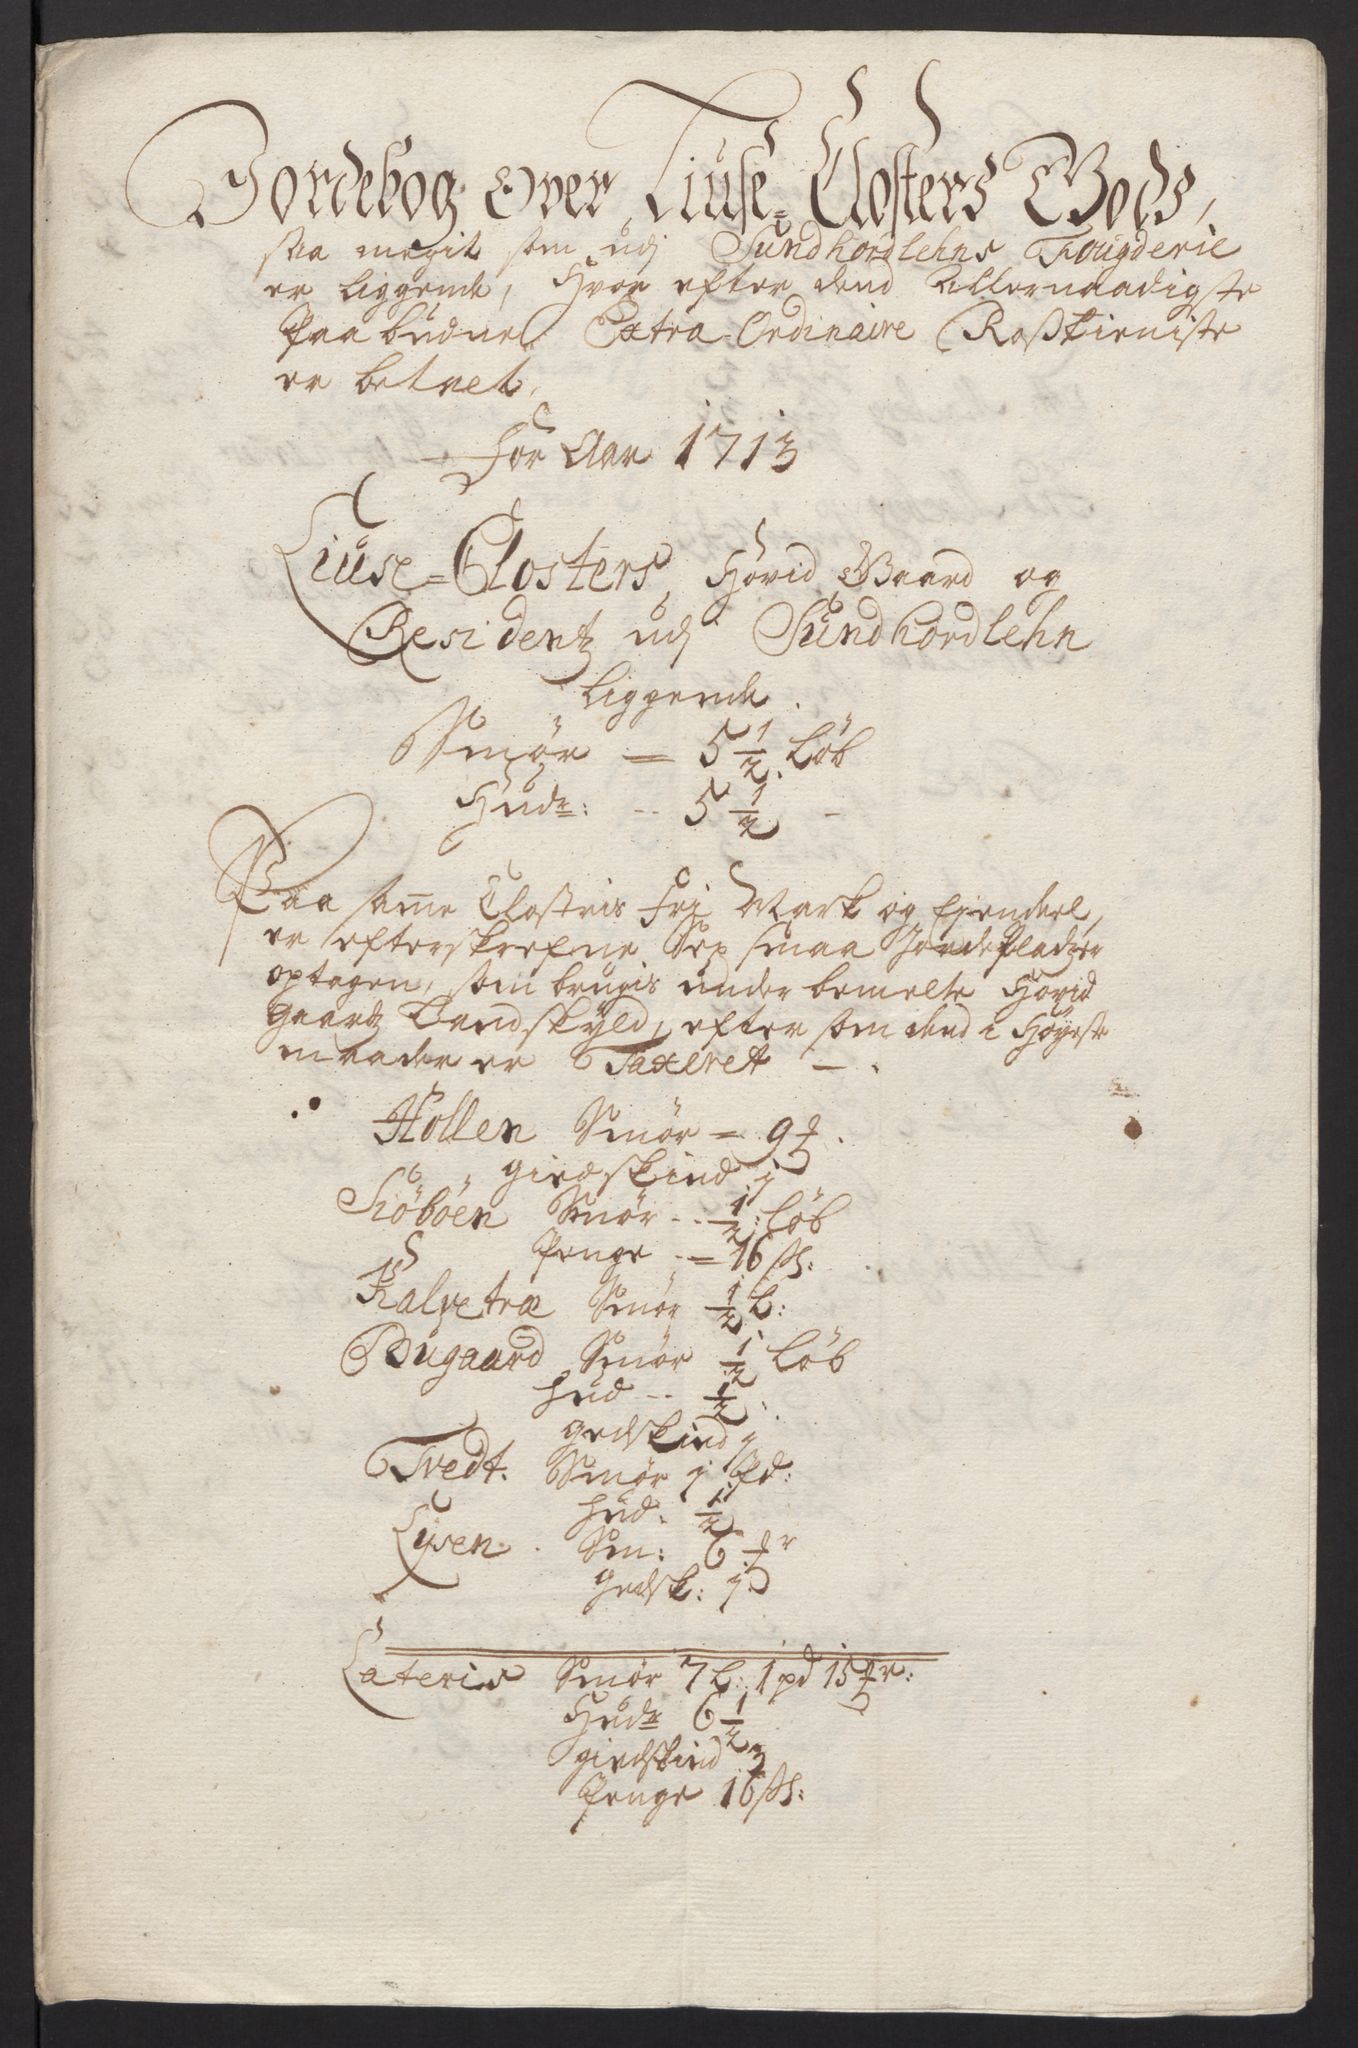 Jordebog Over Liuse Closters Gods,
saa megit som udj Sundhordlehns Fougderie
er liggende, Hvor efter dend Allernaadigste
Paabudne Extra-Ordinaire Rostieniste
er betalt,
for Aar 1713
Liuse=Closters, Hovid Gaard og
Residentz udj Sundhordlehn
liggende.
Smör = 5 1/2 Löb
Hudr: -- 5 1/2 -
Paa samme Closteris frj Mark og Ejendeel,
er efterskrefne Sex smaa Jordepladtzer
optagen, som brugis under bemelte Hovid
Gaardtz Landskyld, efter som dend i Höyeste
maader er Taxeret -.
Hollen Smör = 9 ℔.
giedskind j
Siöböen Smör -- 1/2: Löb
Penge -- = 16 ß:
Kalvetræ Smör 1/2 L:
Bugaard Smör 1/2 Löb
hud -- 1/2:
gedskind j
Tvedt. Smör j Pd:
hud. 1/2
Lysen. Sm: 6 ℔r
gedsk: j
Lateris Smör 7 L: 1 pd 15 ℔r:
Hudr 6 1/2
giedskind 3
Penge 16 ß: